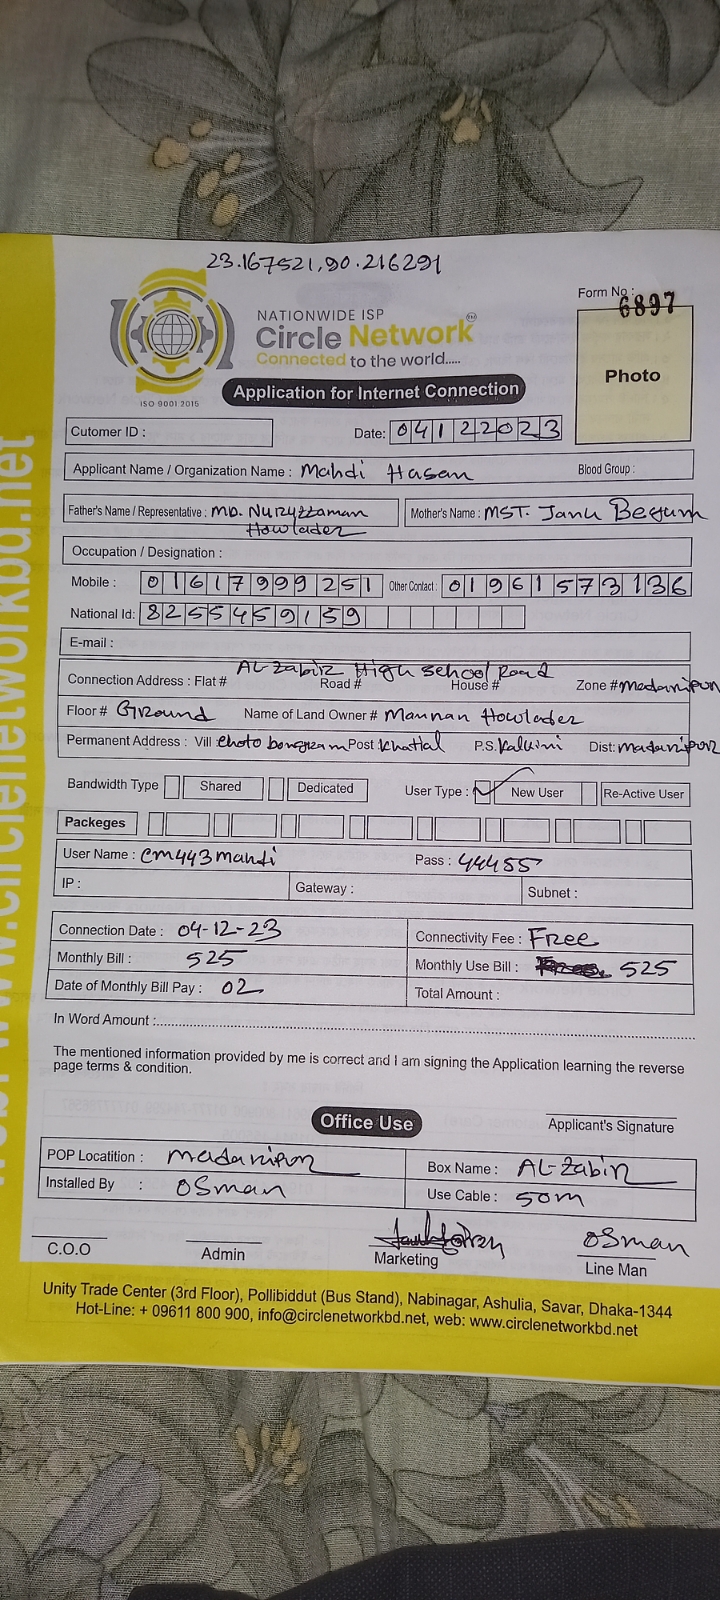 23.167521,90.216291
Form No : 6897
NATIONWIDE ISP
Circle Network
Connected to the world.....
ISO 9001:2015
Photo
Application for Internet Connection
Cutomer ID :
Date: 04122023
Applicant Name / Organization Name : Mahdi Hasan Blood Group :
Father's Name / Representative : MD. Nuruzzaman Howlader
Mother's Name : MST. Janu Begum
Occupation / Designation :
Mobile : 01617999251 Other Contact : 01961573136
National Id: 8255459159
E-mail :
AL-Zabir High School Road
Connection Address : Flat # Road # House # Zone # madaripur
Floor # Ground Name of Land Owner # Mannan Howlader
Permanent Address : Vill Post Khattal P.S. Kalkini Dist: madaripur
Bandwidth Type Shared Dedicated User Type : New User Re-Active User
Packeges
User Name : cm443mahdi Pass : 44455
IP : Gateway : Subnet :
Connection Date : 04-12-23 Connectivity Fee : Free
Monthly Bill : 525 Monthly Use Bill : 525
Date of Monthly Bill Pay : 02 Total Amount :
In Word Amount :
The mentioned information provided by me is correct and I am signing the Application learning the reverse
page terms & condition.
Applicant's Signature
Office Use
POP Locatition : madaripur Box Name : AL-Zabir
Installed By : OSman Use Cable : 50m
OSman
C.O.O Admin Marketing Line Man
Unity Trade Center (3rd Floor), Pollibiddut (Bus Stand), Nabinagar, Ashulia, Savar, Dhaka-1344
Hot-Line: + 09611 800 900, info@circlenetworkbd.net, web: www.circlenetworkbd.net
www.circlenetworkbd.net